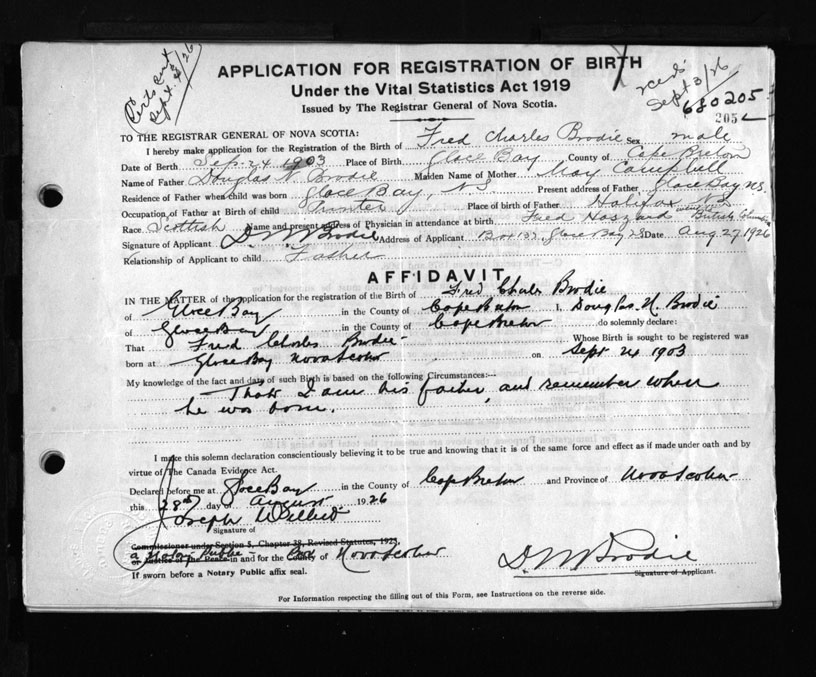 Cert sent
Sept 4/26
APPLICATION FOR REGISTRATION OF BIRTH
Under the Vital Statistics Act 1919
Issued by The Registrar General of Nova Scotia.
recd:
Sept 3/26
680205
205
TO THE REGISTRAR GENERAL OF NOVA SCOTIA:
I hereby make application for the Registration of the Birth of Fred Charles Brodie Sex male
Date of Birth Sep. 24 1903 Place of Birth Glace Bay County of Cape Breton
Name of Father Douglas N. Brodie Maiden Name of Mother May Campbell
Residence of Father when child was born Glace Bay, N S Present address of Father Glace Bay N.S.
Occupation of Father at Birth of child Printer Place of birth of Father Halifax N S
Race Scottish Name and present address of Physician in attendance at birth Fred Haszard British Columbia
Signature of Applicant D. N. Brodie Address of Applicant Box 133, Glace Bay N S Date Aug. 27, 1926
Relationship of Applicant to child Father
AFFIDAVIT
IN THE MATTER of the application for the registration of the Birth of Fred Charles Brodie
of Glace Bay in the County of Cape Breton I, Douglas N. Brodie
of Glace Bay in the County of Cape Breton do solemnly declare:
That Fred Charles Brodie Whose Birth is sought to be registered was
born at Glace Bay Nova Scotia on Sept 24 1903
My knowledge of the fact and date of such Birth is based on the following Circumstances:—
That I am his father, and remember when
he was born.
I make this solemn declaration conscientiously believing it to be true and knowing that it is of the same force and effect as if made under oath and by
virtue of The Canada Evidence Act.
Declared before me at Glace Bay in the County of Cape Breton and Province of Nova Scotia
this 28th day of August 1926
Joseph
Signature of
Commissioner under Section 5, Chapter 38, Revised Statutes, 1923.
a Notary Public
or Justice of the Peace in and for the County of Nova Scotia
If sworn before a Notary Public affix seal.
D. N. Brodie
Signature of Applicant.
For Information respecting the filling out of this Form, see Instructions on the reverse side.